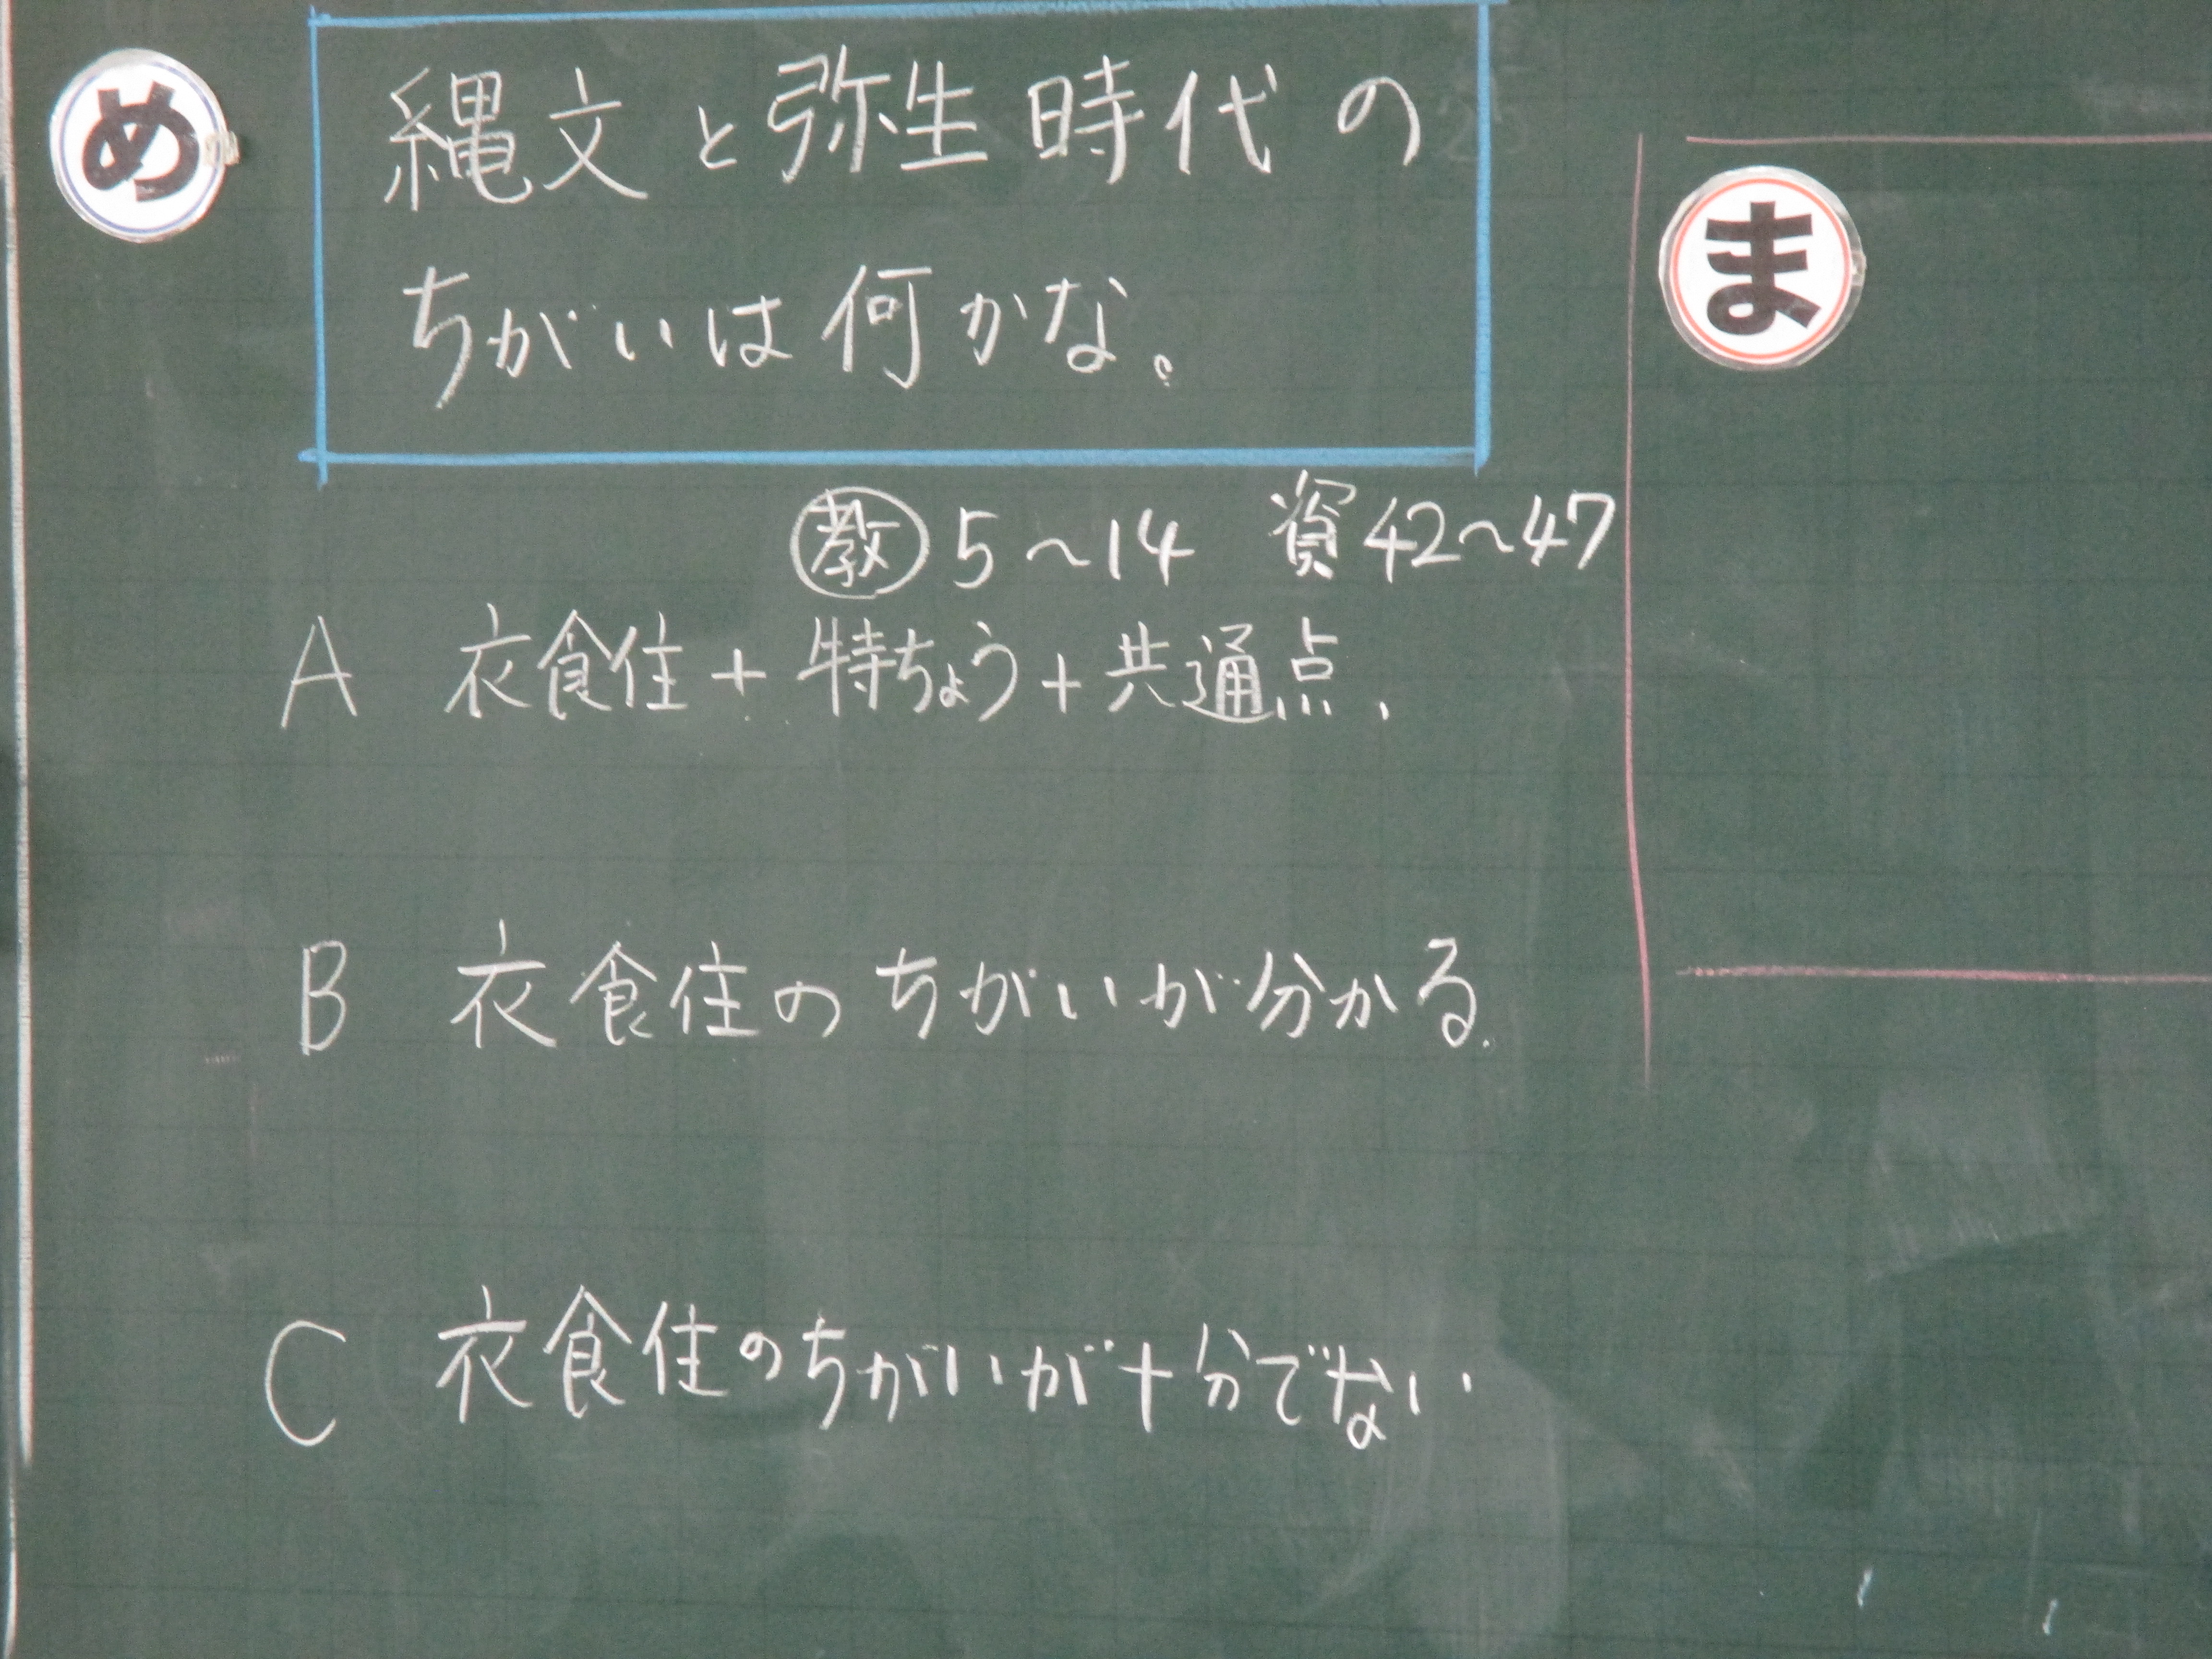 め
縄文と弥生時代の
ちがいは何かな。
ま
教 5〜14 資42〜47
A 衣食住+特ちょう+共通点、
B 衣食住のちがいが分かる.
C 衣食住のちがいが十分でない